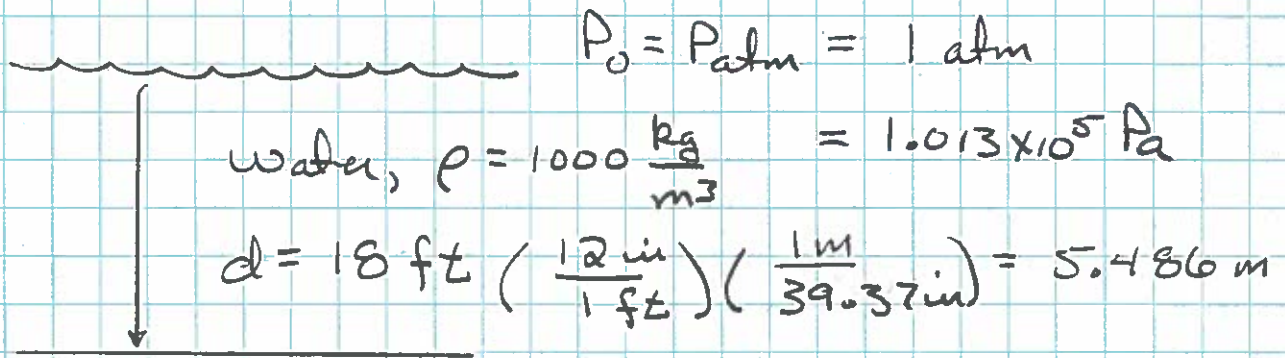 P₀ = Patm = 1 atm
= 1.013 x10⁵ Pa
water, ρ = 1000 kg/m³
d = 18 ft (12 in / 1 ft)(1 m / 39.37 in) = 5.486 m